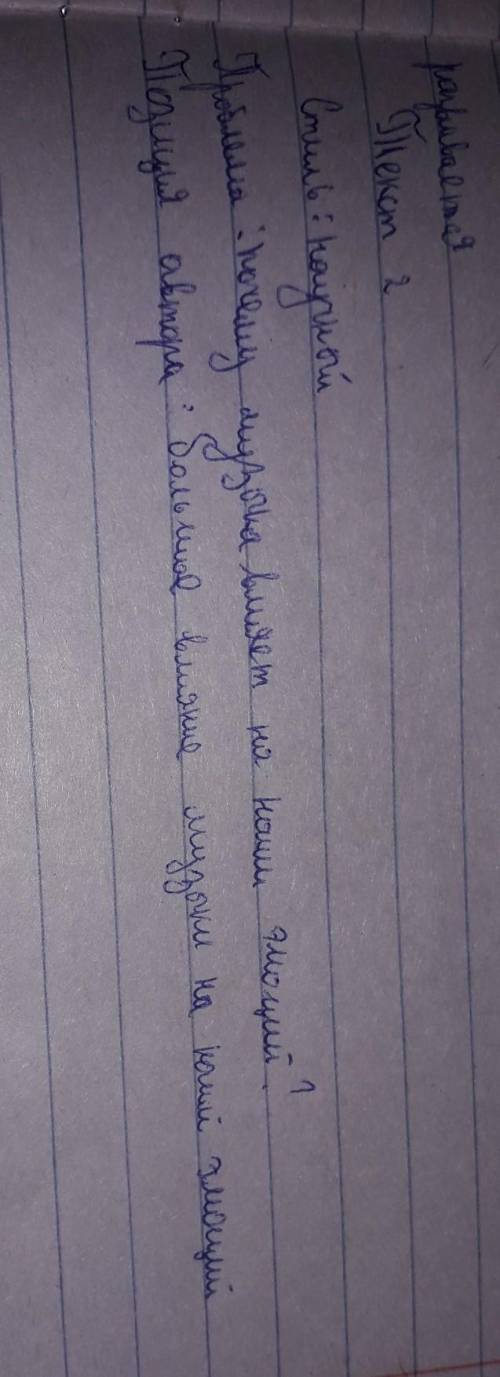 разрывается
Текст 2
Стиль: научный
Проблема: почему музыка влияет на наши эмоций?
Позиция автора: большое влияние музыки на нашй эмоций